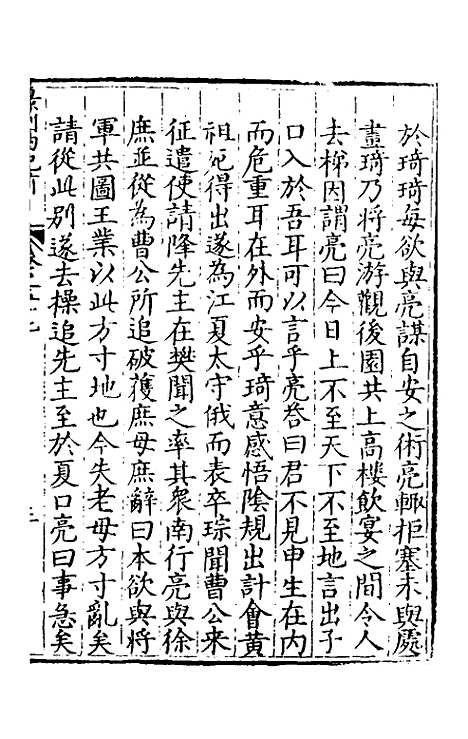 於琦琦每欲與亮謀自安之術亮輙拒塞未與處
畫琦乃將亮游觀後園共上高樓飲宴之間令人
去梯因謂亮曰今日上不至天下不至地言出子
口入於吾耳可以言乎亮答曰君不見申生在内
而危重耳在外而安乎琦意感悟陰規出計會黄
祖死得出遂為江夏太守俄而表卒琮聞曹公來
征遣使請降先主在樊聞之率其衆南行亮與徐
庶並從為曹公所追破獲庶母庶辭曰本欲與將
軍共圖王業以此方寸地也今失老母方寸亂矣
請從此别遂去操追先主至於夏口亮曰事急矣